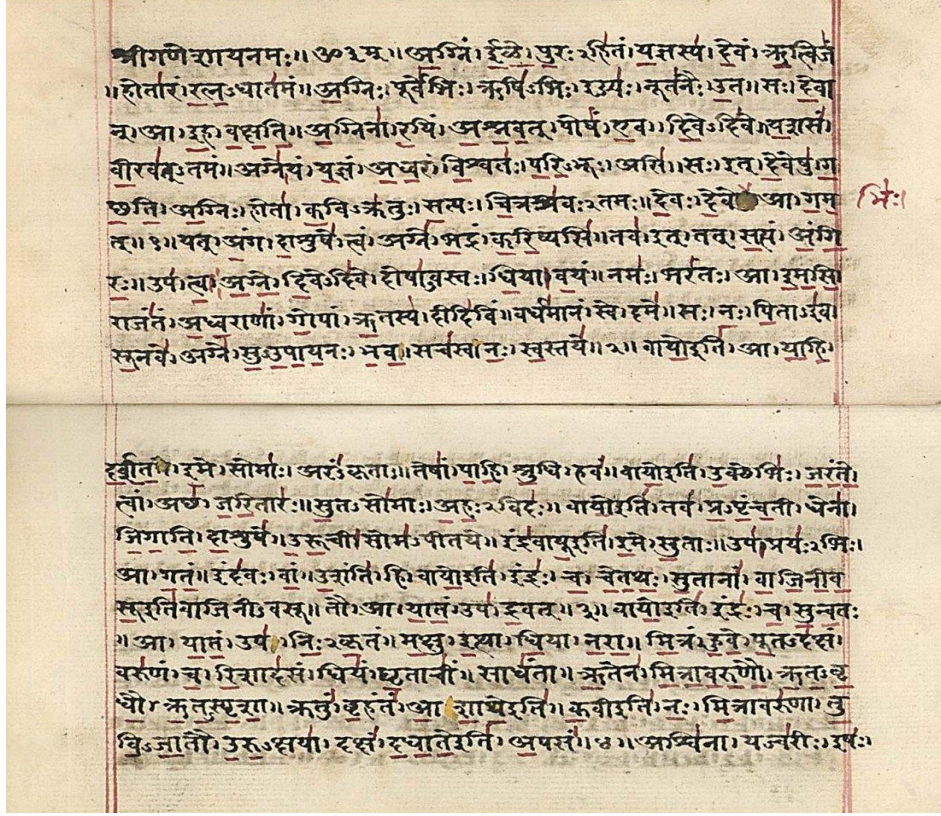 श्रीगणेशायनमः॥ॐ३म्॥अग्निं।ईळे।पुरःऽहितं।यज्ञस्य।देवं।ऋत्विजं
॥होतारं।रत्नऽधातमं॥अग्निः।पूर्वेभिः।ऋषिऽभिः।ईड्यः।नूतनैः।उत॥सः।देवा
न्।आ।इह।वक्षति॥अग्निना।रयिं।अश्नवत्।पोषं।एव।दिवेऽदिवे॥यशसं
वीरवत्ऽतमं॥अग्नेयं।यज्ञं।अध्वरं।विश्वतः।परिऽभूः।असि॥सः।इत्।देवेषु।ग
छति।अग्निः।होता।कविऽक्रतुः।सत्यः।चित्रश्रवःऽतमः॥देवः।देवे आ।गम
भिः।
त्॥१॥यत्।अंग।दाशुषे।त्वं।अग्ने।भद्रं।करिष्यसि॥तव।इत्।तत्।सत्यं।अंगि
रः॥उप।त्वा।अग्ने।दिवेऽदिवे।दोषाऽवस्तः।धिया।वयं॥नमः।भरंतः।आ।इमसि
राजंतं।अध्वराणां।गोपां।ऋतस्य।दीदिविं॥वर्धमानं।स्वे।दमे॥सः।नः।पिताऽइव
सूनवे।अग्ने।सुऽउपायनः।भव॥सचस्व।नः।स्वस्तये॥२॥वायोइति।आ।याहि।
दर्शत।इमे।सोमाः।अरंऽकृताः॥तेषां।पाहि।श्रुधि।हवं॥वायोइति।उक्थेभिः।जरंते।
त्वां।अछ।जरितारः॥सुतऽसोमाः।अहःऽविदः॥वायोइति।तव।प्रऽपृंचती।धेना।
जिगाति।दाशुषे॥उरूची।सोमऽपीतये॥इंद्रवायूइति।इमे।सुताः॥उप।प्रयःऽभिः।
आ।गतं॥इंदवः।वां।उशंति।हि॥वायोइति।इंद्रः।च।चेतथः।सुतानां।वाजिनीव
सूइतिवाजिनीऽवसू॥तौ।आ।यातं।उप।द्रवत्॥३॥वायोइति।इंद्रः।च।सुन्वतः
॥आ।यातं।उप।निःऽकृतं॥मक्षु।इत्था।धिया।नरा॥मित्रं।हुवे।पूतऽदक्षं।
वरुणं।च।रिशादसं।धियं।घृताचीं।साधंता॥ऋतेन।मित्रावरुणौ।ऋतऽवृ
धौ।ऋतऽस्पृशा॥क्रतुं।बृहंतं।आशाथेइति॥कवीइति।नः।मित्रावरुणा।तु
विऽजातौ।उरुऽक्षया।दक्षं।दधातेइति।अपसं॥४॥अश्विना।यज्वरीः।इषः।